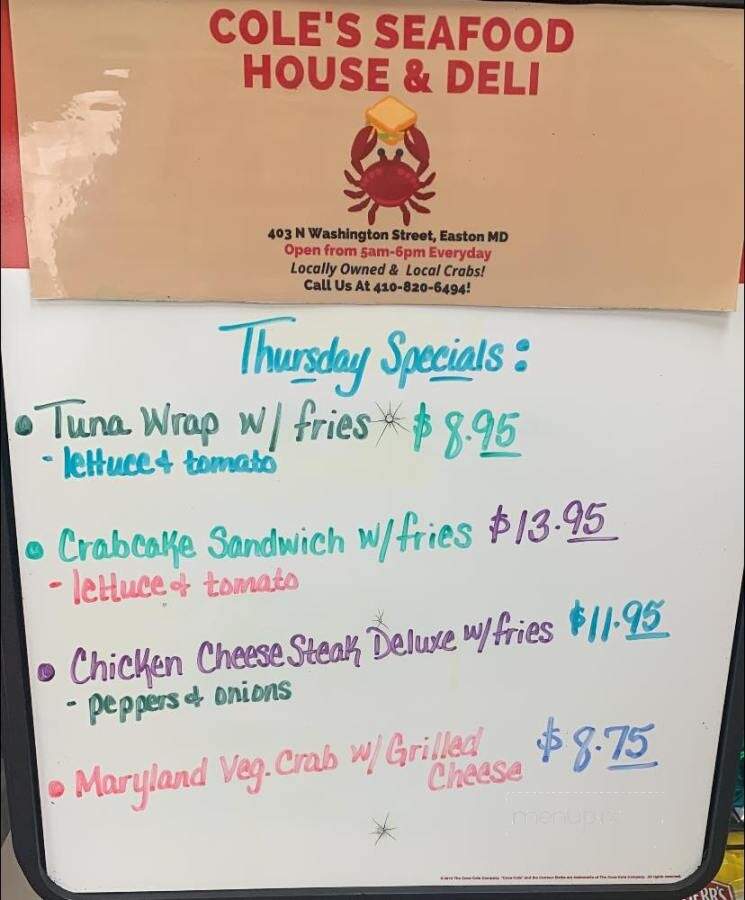 COLE'S SEAFOOD
HOUSE & DELI
403 N Washington Street, Easton MD
Open from 5am-6pm Everyday
Locally Owned & Local Crabs!
Call Us At 410-820-6494!
Thursday Specials:
• Tuna Wrap w/ fries $8.95
- lettuce & tomato
• Crabcake Sandwich w/fries $13.95
- lettuce & tomato
• Chicken Cheese Steak Deluxe w/fries $11.95
- peppers & onions
• Maryland Veg. Crab w/ Grilled
Cheese $8.75